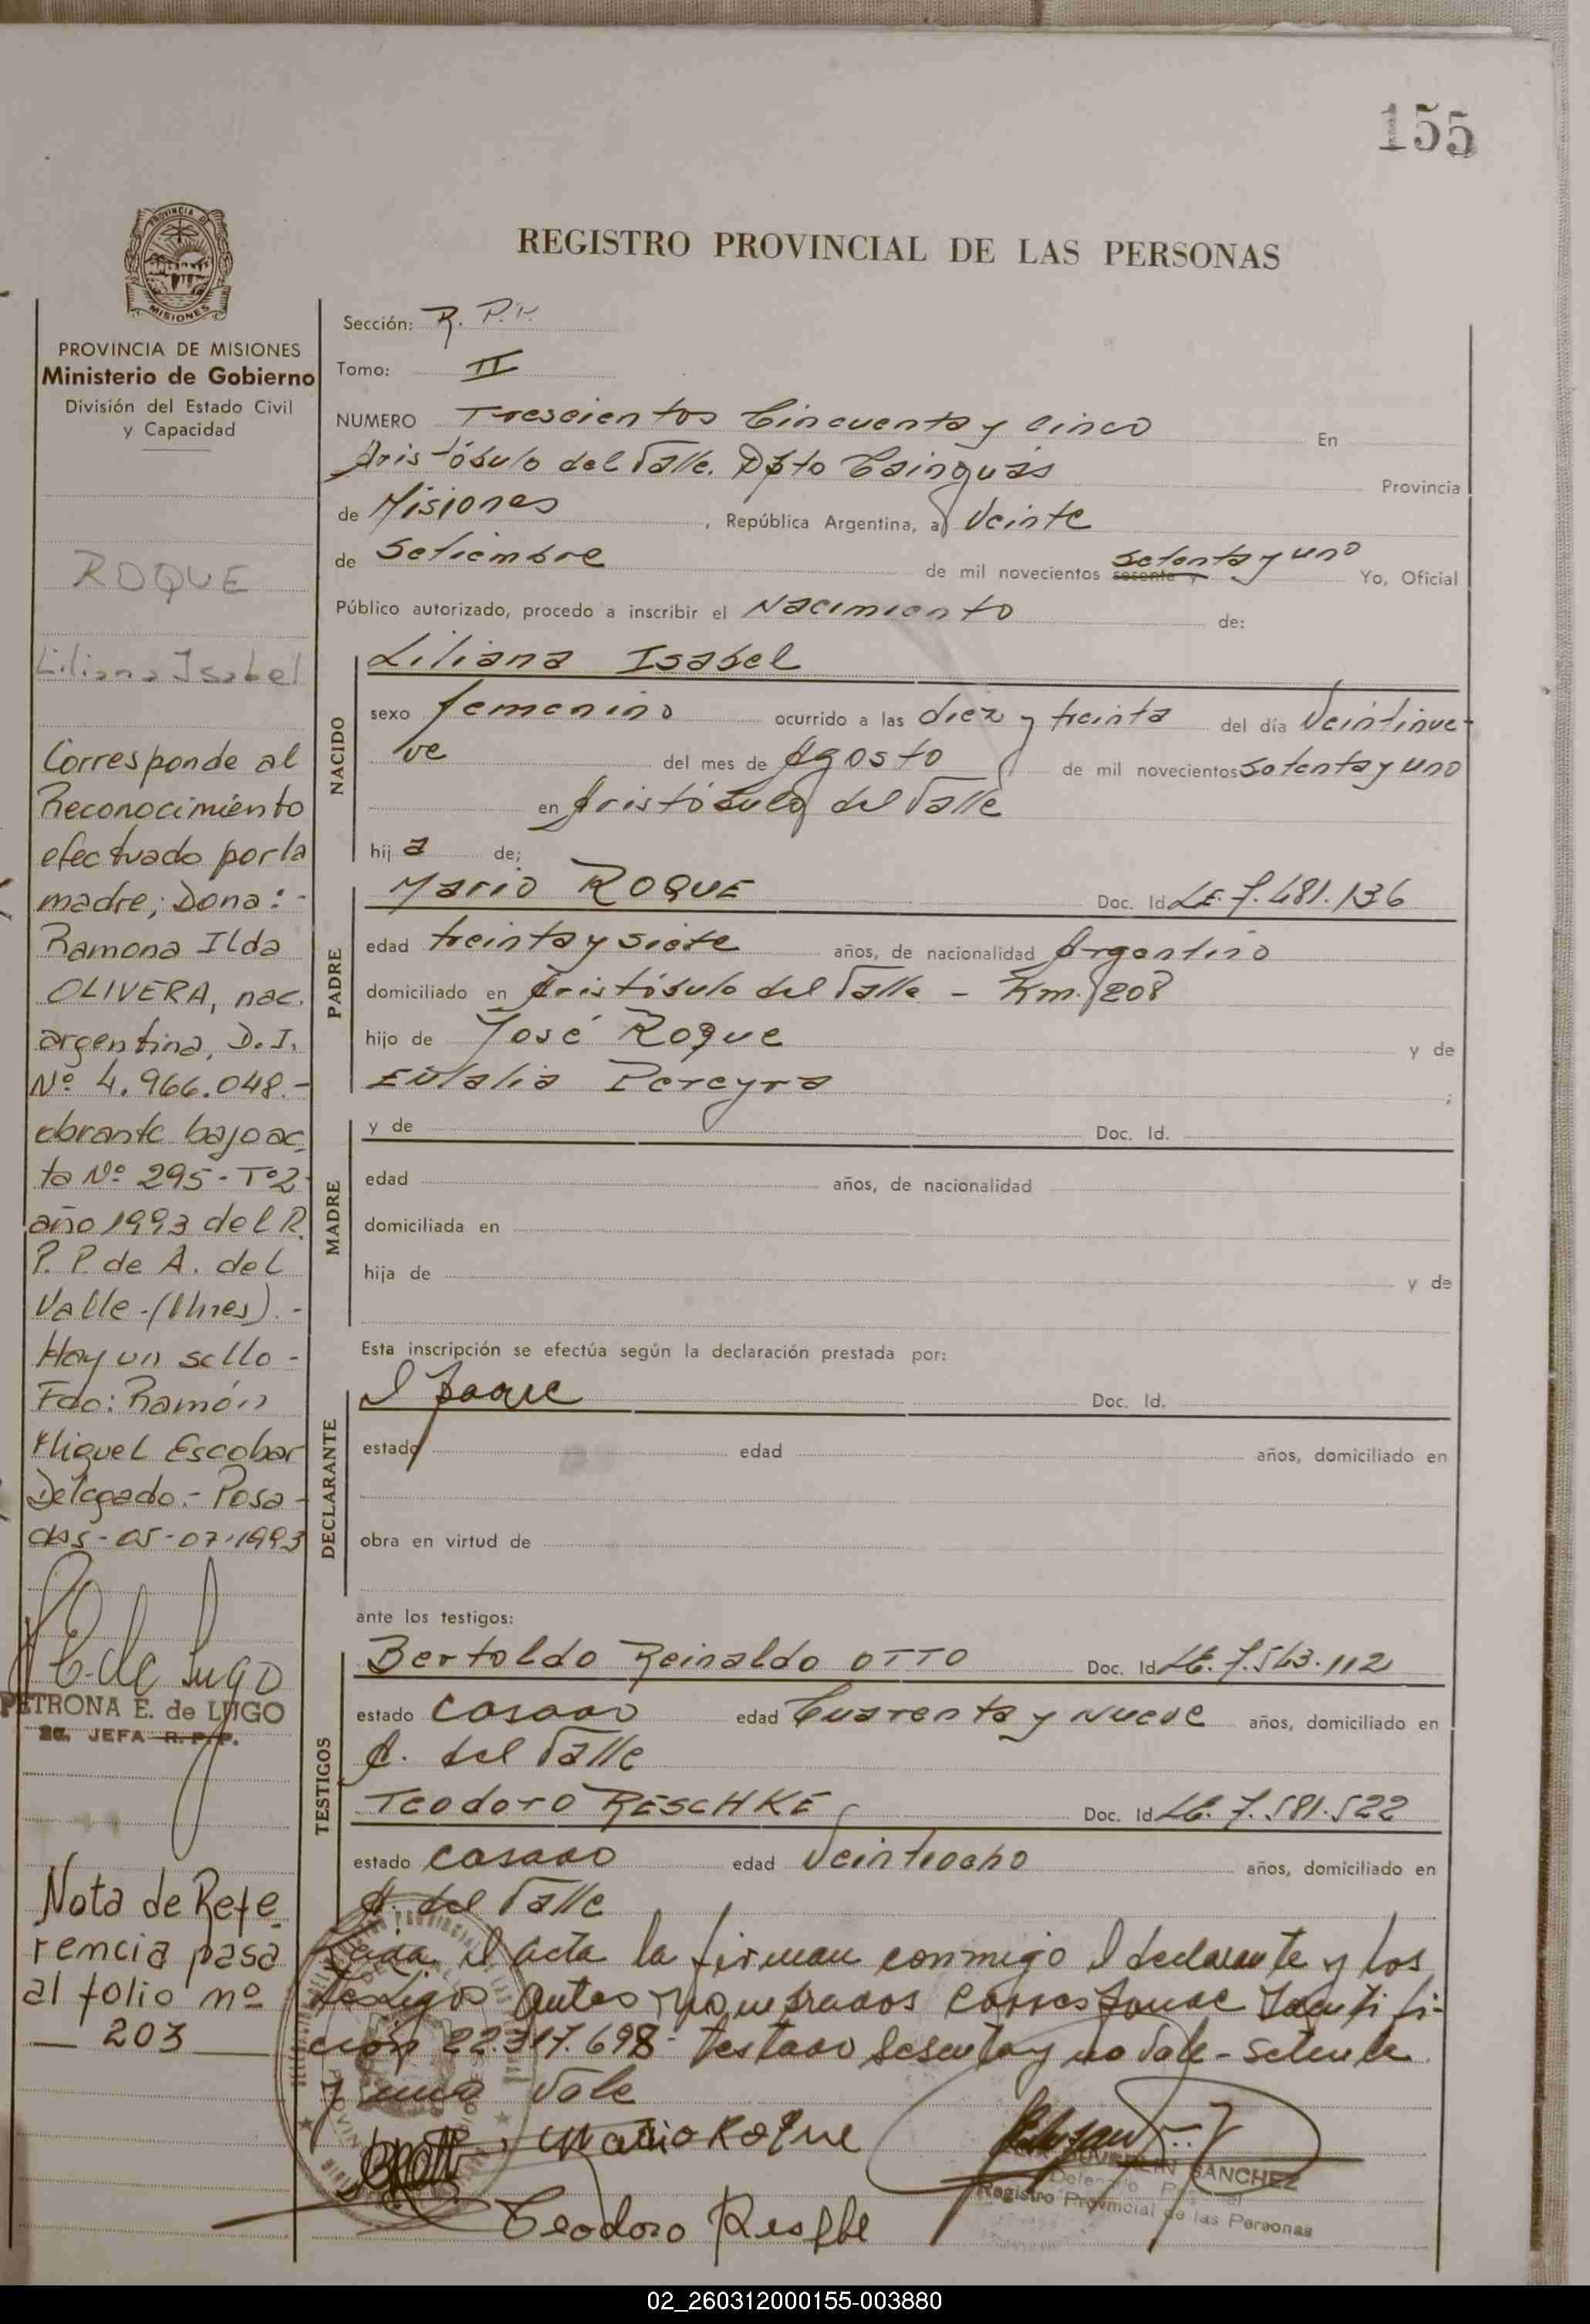 155
REGISTRO PROVINCIAL DE LAS PERSONAS
PROVINCIA DE MISIONES
Ministerio de Gobierno
División del Estado Civil
y Capacidad
ROQUE
Liliana Isabel
Corresponde al
Reconocimiento
efectuado por la
madre; Dona: -
Ramona Ilda
OLIVERA, nac.
argentina, D.I.
Nº 4.966.048.-
obrante bajo ac
ta Nº 295 - Tº2
año 1993 del R.
P. P. de A. del
Valle -(Mnes). -
Hay un sello -
Fdo: Ramón
Miguel Escobar
Delegado.- Posa-
das - 05-07-1993
E. de Lugo
PETRONA E. de LUGO
JEFA R. P. P.
Nota de Refe
rencia pasa
al folio nº
— 203 —
Sección: R. P.P.
Tomo: II
NUMERO Trescientos Cincuenta y cinco En
Aristóbulo del Valle. Dpto Cainguás Provincia
de Misiones, República Argentina, a Veinte
de Setiembre de mil novecientos sesenta y setenta y uno Yo, Oficial
Público autorizado, procedo a inscribir el Nacimiento de:
NACIDO
Liliana Isabel
sexo femenino ocurrido a las diez y treinta del día Veintinue-
ve del mes de Agosto de mil novecientos setenta y uno
en Aristóbulo del Valle
hij a de;
PADRE
Mario ROQUE Doc. Id. LE. 7.481.136
edad treinta y siete años, de nacionalidad Argentino
domiciliado en Aristóbulo del Valle - Km. 208
hijo de José Roque y de
Eulalia Pereyra ;
MADRE
y de Doc. Id.
edad años, de nacionalidad
domiciliada en
hija de y de
Esta inscripción se efectúa según la declaración prestada por:
DECLARANTE
El Padre Doc. Id.
estado edad años, domiciliado en
obra en virtud de
ante los testigos:
TESTIGOS
Bertoldo Reinaldo OTTO Doc. Id. LE. 7.543.112
estado casado edad Cuarenta y Nueve años, domiciliado en
A. del Valle
Teodoro RESCHKE Doc. Id. LE. 7.581.522
estado casado edad Veintiocho años, domiciliado en
A. del Valle
Leida el acta la firman conmigo el declarante y los
testigos antes nombrados corresponde Identifi-
ción 22.317.698 - testado sesenta y no vale - setenta
y uno vale
Mario Roque
Teodoro
SANCHEZ
Registro Provincial de las Personas
02_260312000155-003880